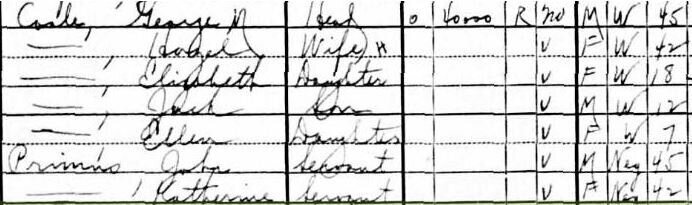 Cooke, George M Head O 40000 R No M W 45
—, Hazel Wife H V F W 42
—, Elizabeth Daughter V F W 18
—, Jack Son V M W 12
—, Ellen Daughter V F W 7
Primus John Servant V M Neg 45
—, Katherine Servant V F Neg 42